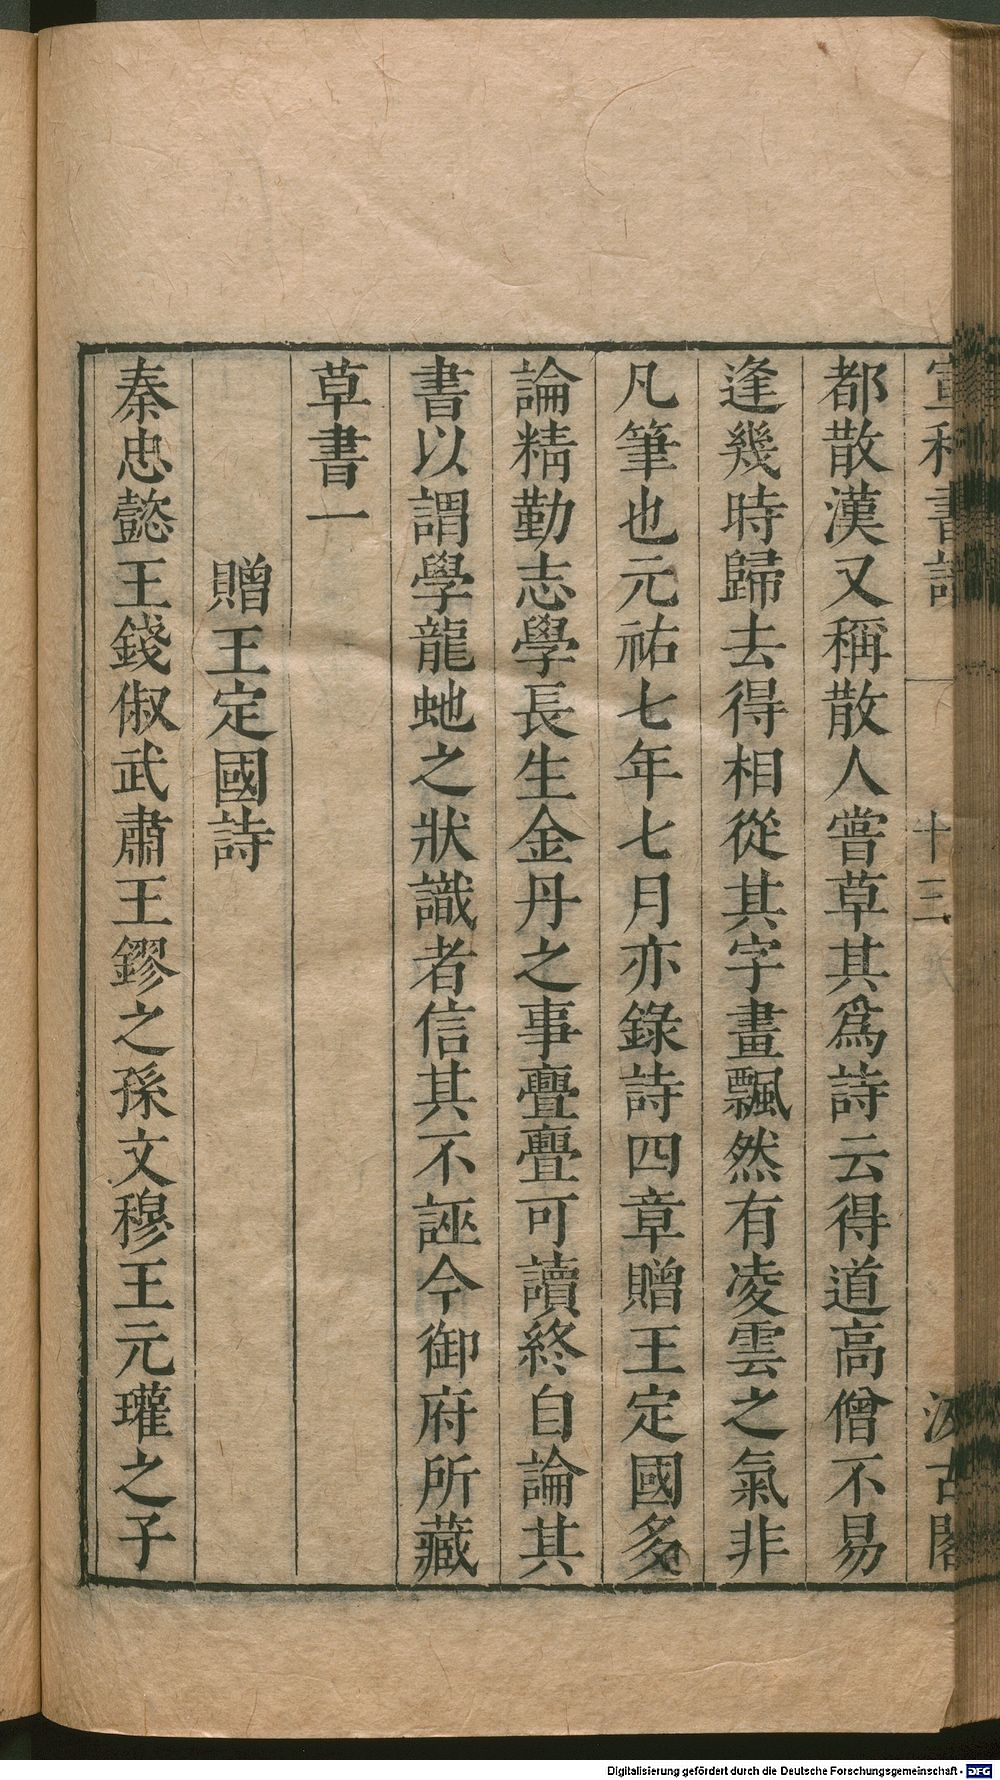 宣和書譜 十三 汲古閣
都散漢又稱散人嘗草其爲詩云得道高僧不易
逢幾時歸去得相從其字畫飄然有凌雲之氣非
凡筆也元祐七年七月亦錄詩四章贈王定國多
論精勤志學長生金丹之事亹亹可讀終自論其
書以謂學龍虵之狀識者信其不誣今御府所藏
草書一
贈王定國詩
秦忠懿王錢俶武肅王鏐之孫文穆王元瓘之子
Digitalisierung gefördert durch die Deutsche Forschungsgemeinschaft - DFG